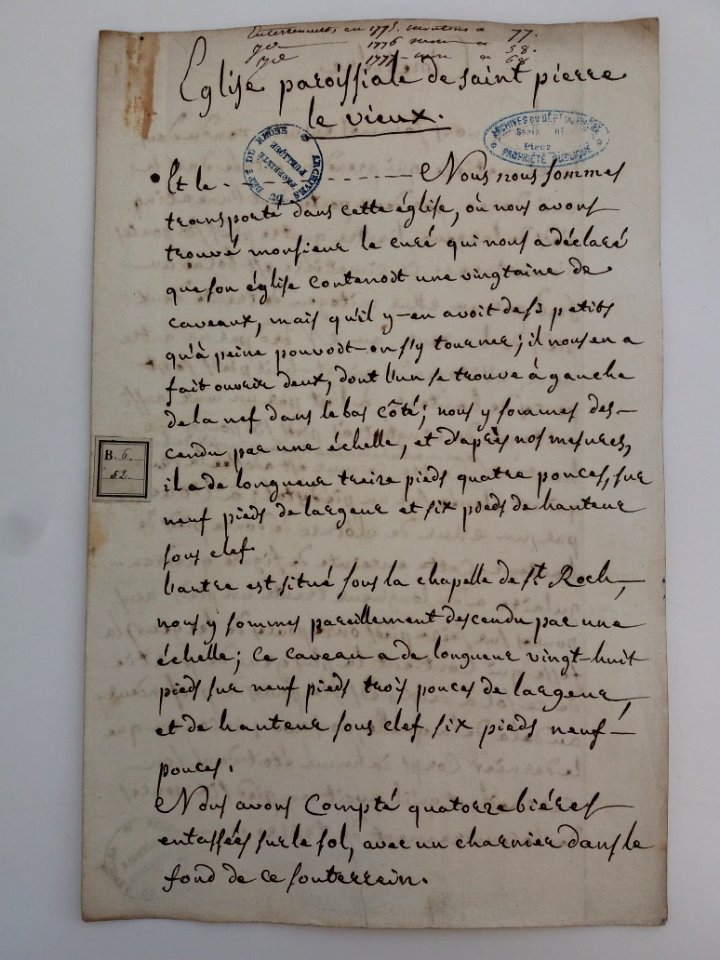 Enterrement, en 1775. montent à 77.
1776 58.
1777 68
Eglise paroissiale de saint pierre
le vieux.
ARCHIVES DU DEPT DU RHÔNE
PROPRIÉTÉ PUBLIQUE
ARCHIVES DU DÉPT DU RHÔNE
Série
Pièce
PROPRIÉTÉ PUBLIQUE
Et le - - - - - - - - - - Nous nous sommes
transporté dans cette église, où nous avons
trouvé monsieur le curé qui nous a déclaré
que son église contenoit une vingtaine de
caveaux, mais qu'il y-en avoit de si petits
qu'à peine pouvoit-on s'y tourner; il nous en a
fait ouvrir deux, dont l'un se trouve à gauche
de la nef dans le bas côté; nous y sommes des-
cendu par une échelle, et d'après nos mesures,
il a de longueur treize pieds quatre pouces, sur
neuf pieds de largeur et six pieds de hauteur
sous clef.
B. 6.
52.
L'autre est situé sous la chapelle de St. Roch,
nous y sommes pareillement descendu par une
échelle; ce caveau a de longueur vingt-huit
pieds sur neuf pieds trois pouces de largeur,
et de hauteur sous clef six pieds neuf-
pouces.
Nous avons compté quatorze biéres
entassées sur le sol, avec un charnier dans le
fond de ce souterrein.